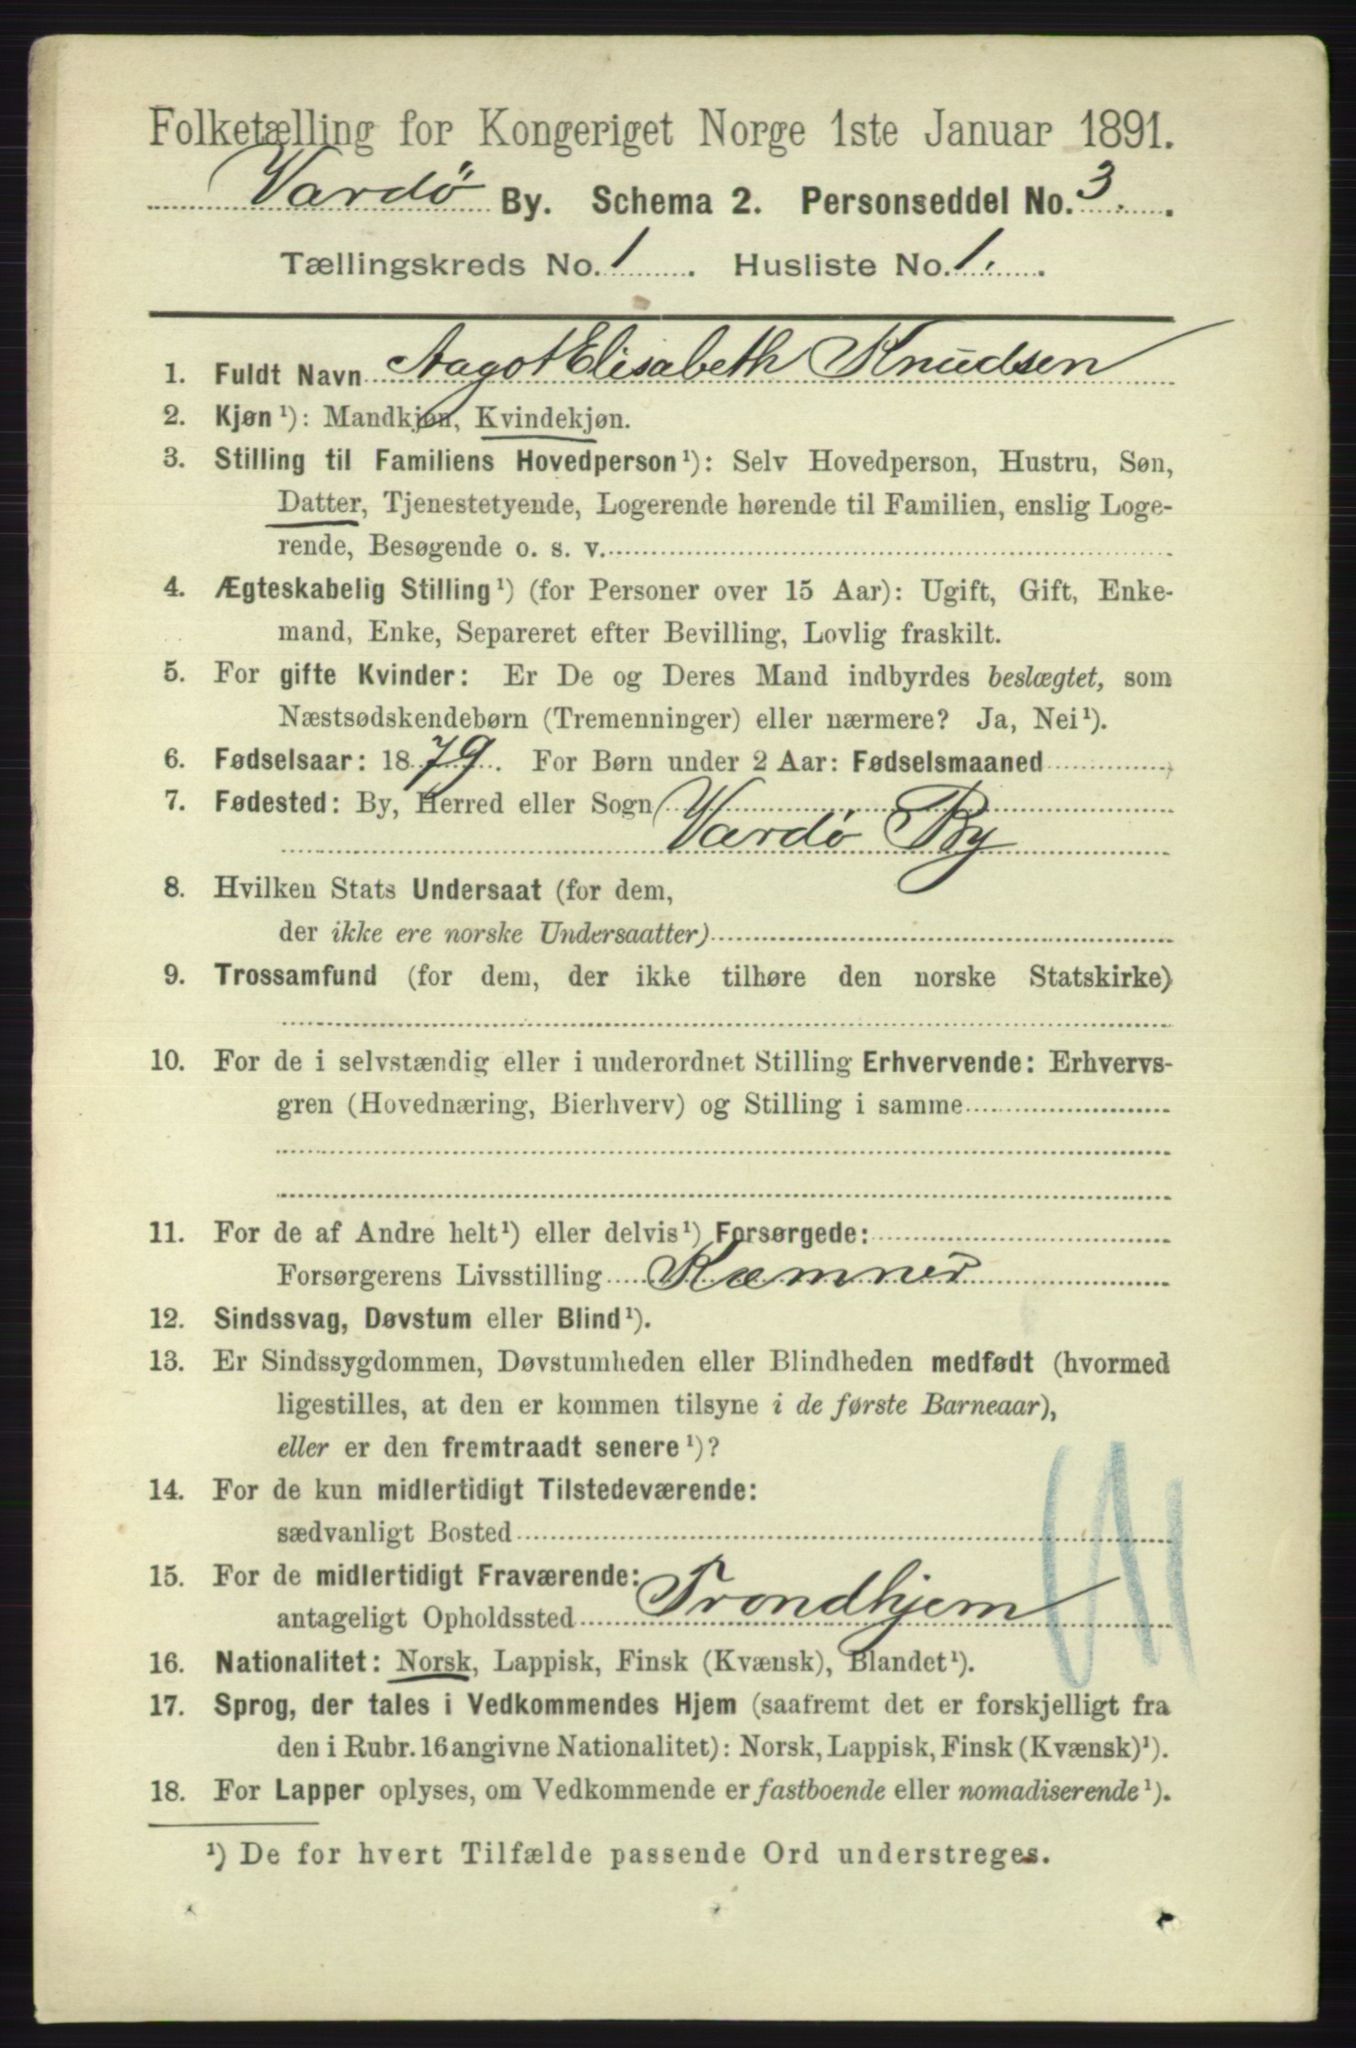 Folketælling for Kongeriget Norge 1ste Januar 1891.
Vardö By. Schema 2. Personseddel No. 3.
Tællingskreds No. 1. Husliste No. 1.
1. Fuldt Navn Aagot Elisabeth Knudsen
2. Kjøn¹): Mandkjøn, Kvindekjøn.
3. Stilling til Familiens Hovedperson¹): Selv Hovedperson, Hustru, Søn,
Datter, Tjenestetyende, Logerende hørende til Familien, enslig Loge-
rende, Besøgende o. s. v.
4. Ægteskabelig Stilling¹) (for Personer over 15 Aar): Ugift, Gift, Enke-
mand, Enke, Separeret efter Bevilling, Lovlig fraskilt.
5. For gifte Kvinder: Er De og Deres Mand indbyrdes beslægtet, som
Næstsødskendebørn (Tremenninger) eller nærmere? Ja, Nei¹).
6. Fødselsaar: 1879. For Børn under 2 Aar: Fødselsmaaned
7. Fødested: By, Herred eller Sogn
Vardö By
8. Hvilken Stats Undersaat (for dem,
der ikke ere norske Undersaatter)
9. Trossamfund (for dem, der ikke tilhøre den norske Statskirke)
10. For de i selvstændig eller i underordnet Stilling Erhvervende: Erhvervs-
gren (Hovednæring, Bierhverv) og Stilling i samme
11. For de af Andre helt¹) eller delvis¹) Forsørgede:
Forsørgerens Livsstilling Kæmner
12. Sindssvag, Døvstum eller Blind¹).
13. Er Sindssygdommen, Døvstumheden eller Blindheden medfødt (hvormed
ligestilles, at den er kommen tilsyne i de første Barneaar),
eller er den fremtraadt senere¹)?
14. For de kun midlertidigt Tilstedeværende:
sædvanligt Bosted
15. For de midlertidigt Fraværende:
antageligt Opholdssted Trondhjem
16. Nationalitet: Norsk, Lappisk, Finsk (Kvænsk), Blandet¹).
17. Sprog, der tales i Vedkommendes Hjem (saafremt det er forskjelligt fra
den i Rubr. 16 angivne Nationalitet): Norsk, Lappisk, Finsk (Kvænsk)¹).
18. For Lapper oplyses, om Vedkommende er fastboende eller nomadiserende¹).
¹) De for hvert Tilfælde passende Ord understreges.